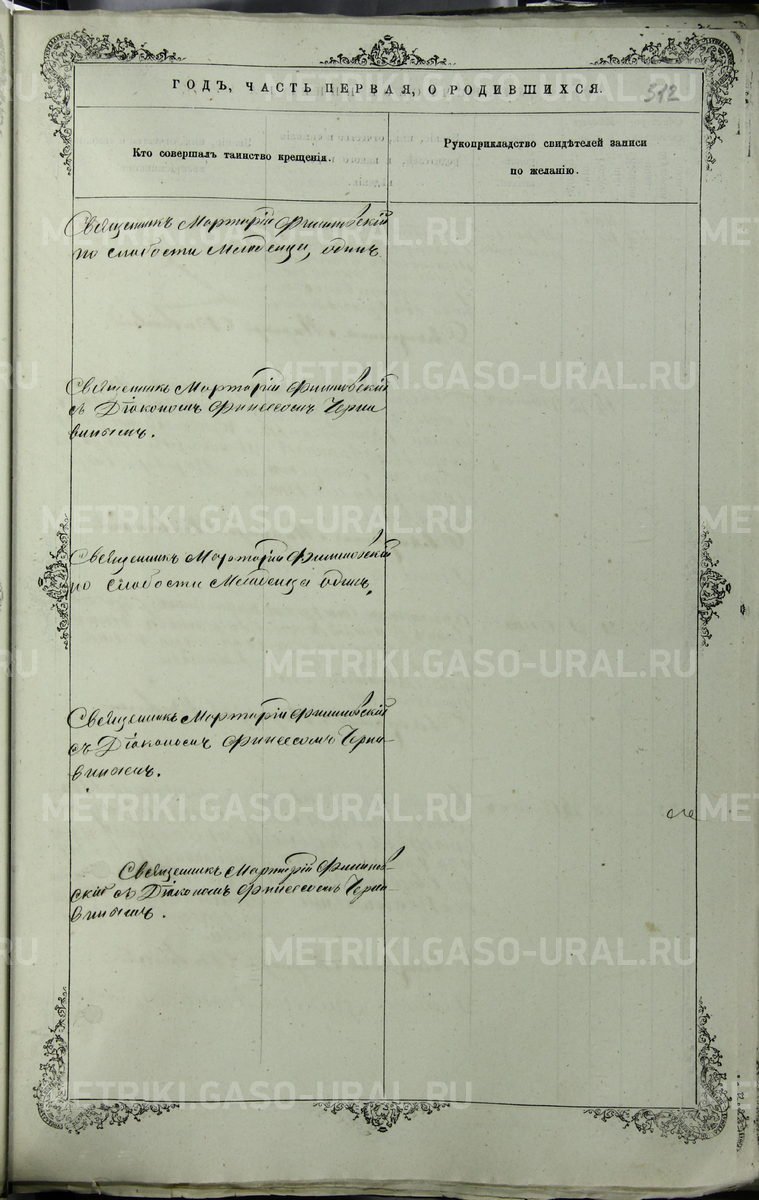 ГОДЪ, ЧАСТЬ ПЕРВАЯ, О РОДИВШИХСЯ.
512
Кто совершалъ таинство крещенія.
Рукоприкладство свидѣтелей записи
по желанію.
Священникъ Мартирій Филиповскій
по слабости Младенца, одинъ
Священникъ Мартирій Филиповскій
съ Діакономъ Финеесомъ Черна
винымъ.
Священникъ Мартирій Филиповскій
по слабости Младенца одинъ,
Священникъ Мартирій Филиповскій
съ Діакономъ Финеесомъ Черна-
винымъ.
Священникъ Мартирій Филипов-
скій съ Діакономъ Финеесомъ Черна-
винымъ.
METRIKI.GASO-URAL.RU